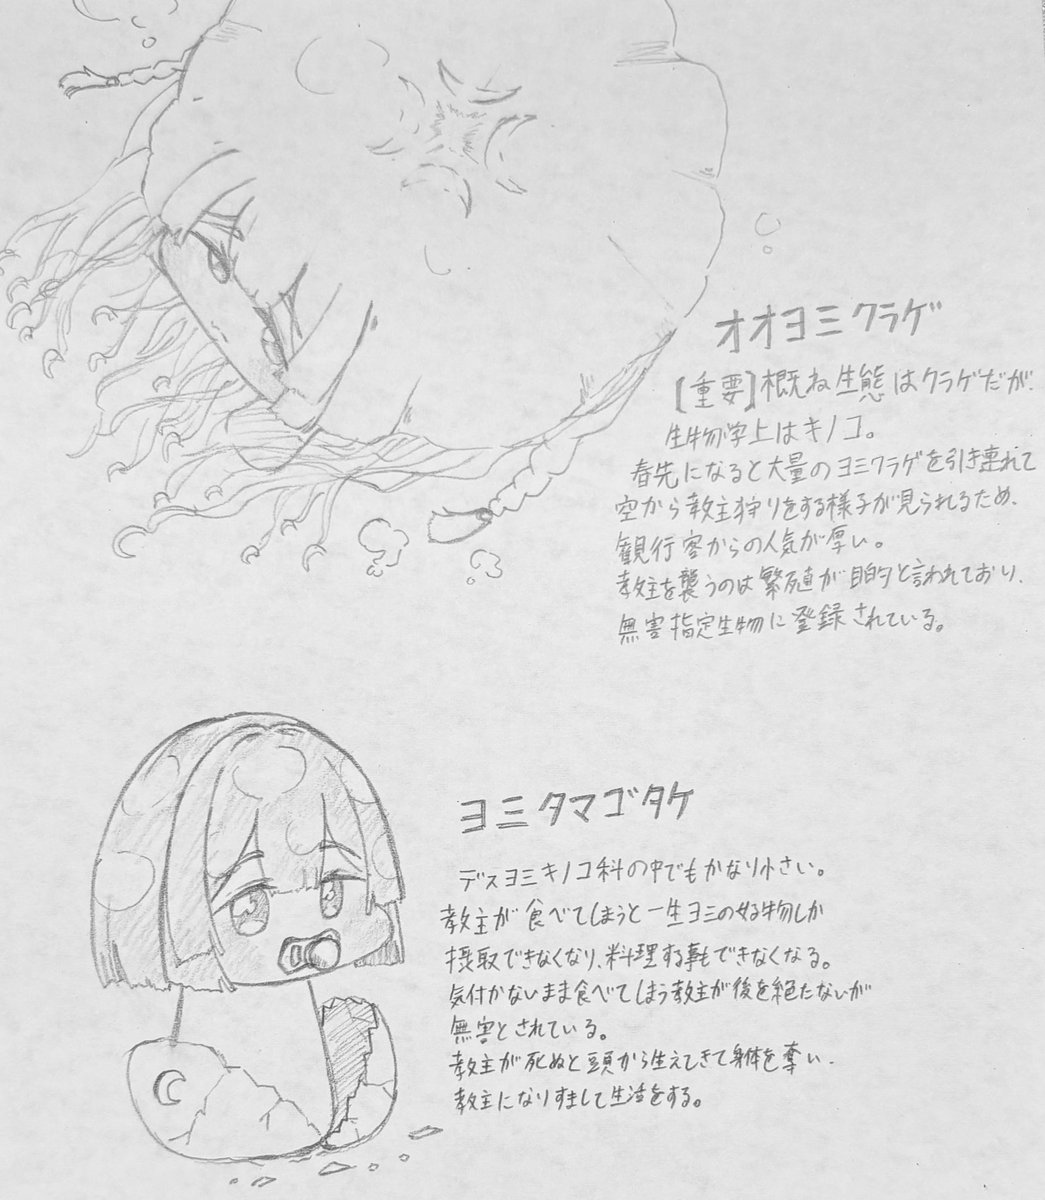 オオヨミクラゲ
[重要]概ね生態はクラゲだが、
生物学上はキノコ。
春先になると大量のヨミクラゲを引き連れて
空から教主狩りをする様子が見られるため、
観行客からの人気が厚い。
教主を襲うのは繁殖が目的と言われており、
無害指定生物に登録されている。
ヨミタマゴタケ
デスヨミキノコ科の中でもかなり小さい。
教主が食べてしまうと一生ヨミの好物しか
摂取できなくなり、料理する事もできなくなる。
気付かないまま食べてしまう教主が後を絶たないが
無害とされている。
教主が死ぬと頭から生えてきて身体を奪い、
教主になりすまして生活をする。